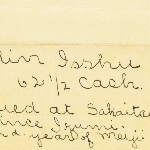 Isshu
62 1/2 Cash.
at Sakaita
ince Izumi.
year of Meiji